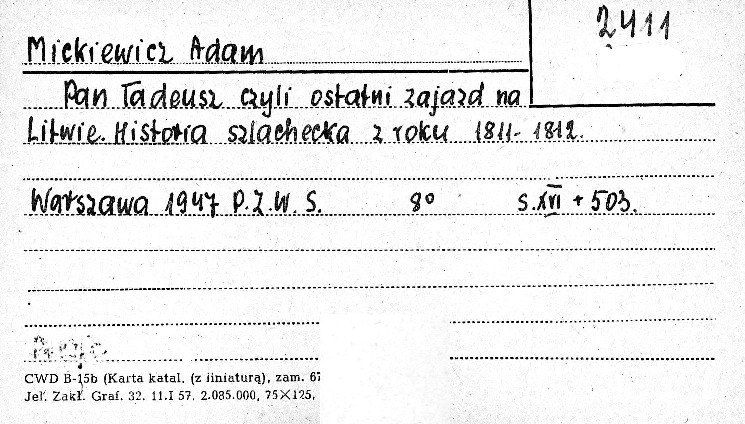 2411
Mickiewicz Adam
Pan Tadeusz czyli ostatni zajazd na
Litwie. Historia szlachecka z roku 1811-1812.
Warszawa 1947 P.Z.W.S. 8° s. XVI + 503.
CWD B-15b (Karta katal. (z liniaturą), zam. 67
Jel. Zakł. Graf. 32. 11.I 57. 2.085.000, 75×125,